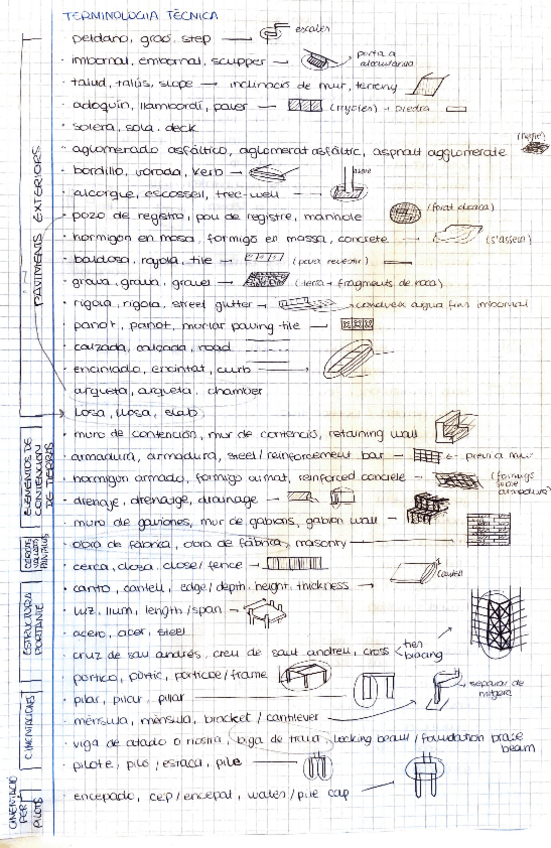 TERMINOLOGIA TÈCNICA
peldaño, graó, step escales
imbornal, embornal, scupper porta a
talud, talús, slope → inclinació de mur, terreny
adoquín, llambordí, paver → piedra
solera, sola, deck
aglomerado asfáltico, aglomerat asfàltic, asphalt agglomerate
bordillo, vorada, kerb
alcorque, escossell, tree-well
pozo de registro, pou de registre, manhole
hormigón en masa, formigó en massa, concrete
baldosa, rajola, tile (para revestir)
grava, grava, gravel (terra → fragments de roca)
rigola, rigola, street gutter → condueix aigua fins imbornal
panot, panot, mortar paving tile
calzada, calçada, road
encintado, encintat, curb
arqueta, arqueta, chamber
Losa, llosa, slab
PAVIMENTS EXTERIORS
muro de contención, mur de contenció, retaining wall
armadura, armadura, steel/reinforcement bar ← previ a mur
hormigón armado, formigó armat, reinforced concrete (formigó armadura)
drenaje, drenatge, drainage
muro de gaviones, mur de gabions, gabion wall
ELEMENTOS DE CONTENCION DE TIERRAS
obra de fábrica, obra de fàbrica, masonry
cerca, closa, close/fence
canto, cantell, edge/depth, height, thickness (cantell)
luz, llum, length/span
acero, acer, steel
cruz de san andrés, creu de sant andreu, cross < then bracing
pórtico, pòrtic, portico/frame
ESTRUCTURA PORTANTE
pilar, pilar, pillar
ménsula, mènsula, bracket/cantilever
viga de atado o riostra, biga de trava, locking beam/foundation brace beam
CIMENTACIONES
pilote, piló/estaca, pile
encepado, cep/encepat, wales/pile cap
PER PILOTS